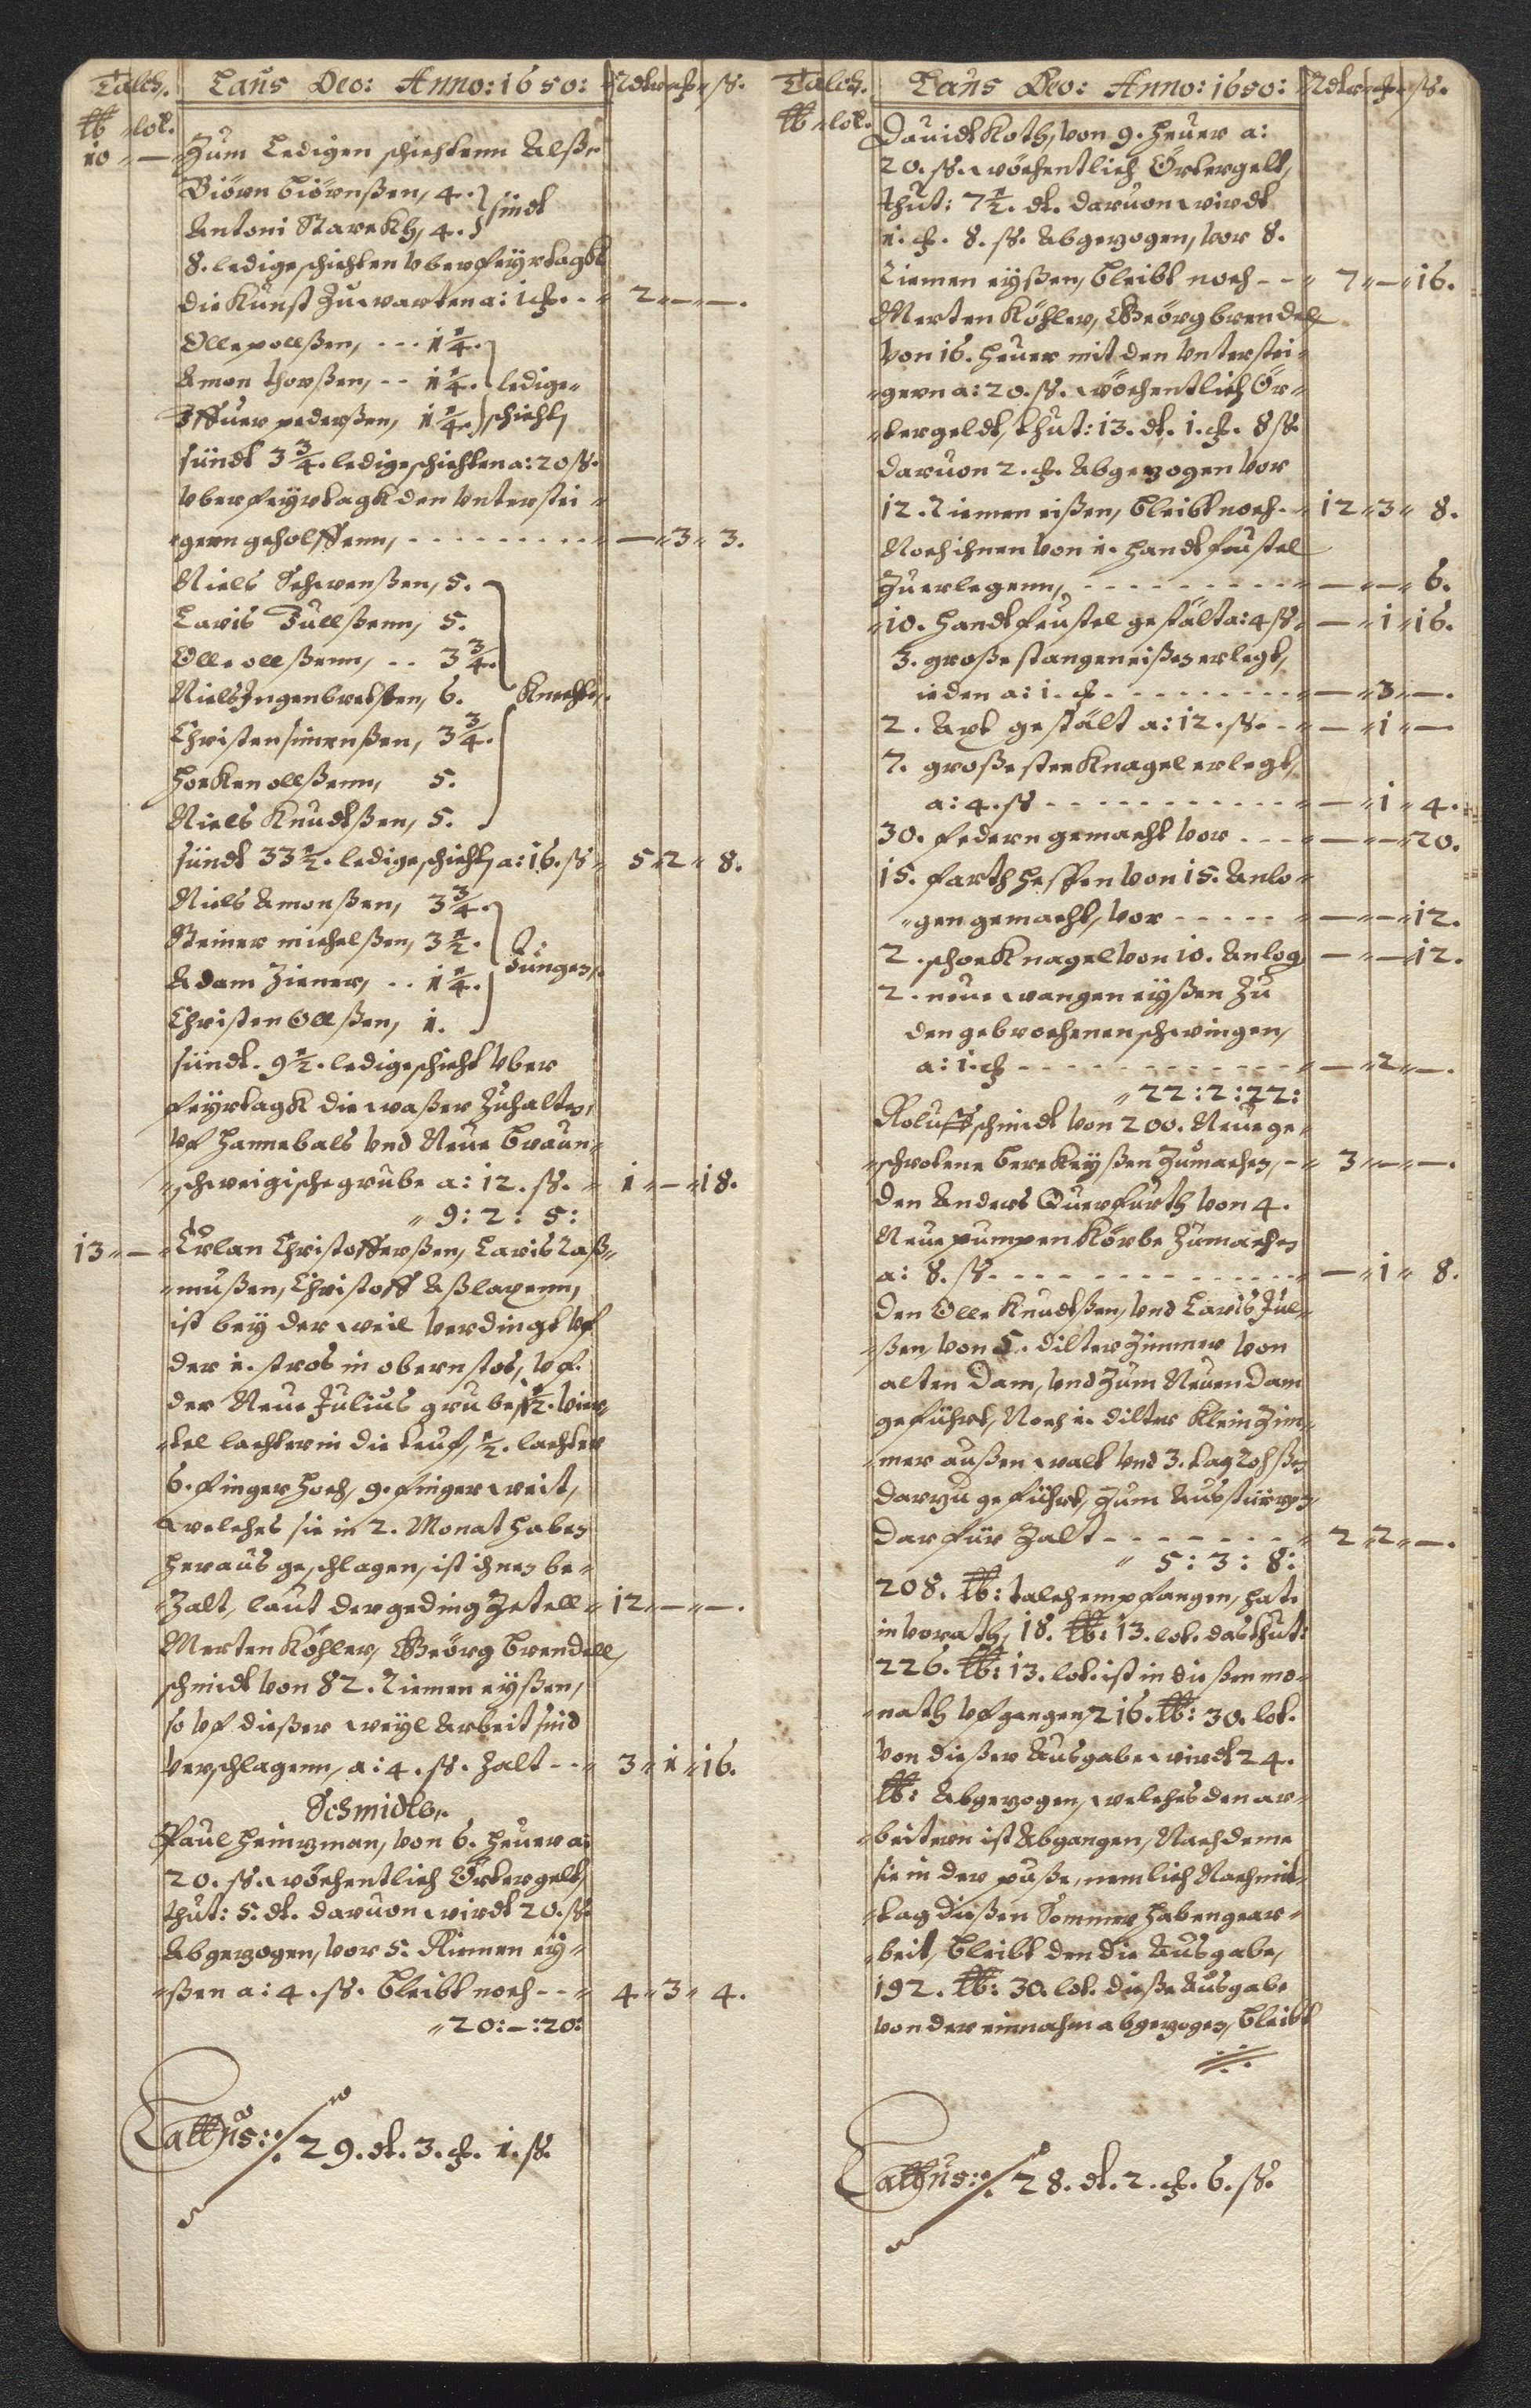 Talch. Laus Deo: Anno: 1650: Rdlr ch ß.
lb lot.
10 — Zum Ledigen schichtenn Alße
Biörn biörnßen, 4.
Antoni Starckh, 4. sindt
8. ledige schichten vber feyrtagkh
die Kunst Zu warten a: 1 ch. - - 2 — —.
Olle pollßen, - - - 1 1/4.
Amon thorßen, - - 1 1/4. ledige
Iffuer pederßen, 1 1/4. schicht,
sündt 3 3/4. ledige schichten a: 20 ß.
vber feyrtagk den vntersteigern
geholffenn, - - - - — 3 3.
Niels Schwenßen, 5.
Lavis Jullßenn, 5.
Olle ollßenn, - - 3 3/4.
Niels Ingenbretßen, 6. Knechte,
Christen simenßen, 3 3/4.
hocken ollßenn, 5.
Niels Knudtßen, 5.
sündt 33 1/2. ledige schicht, a: 16. ß 5 2 8.
Niels Amonßen, 3 3/4.
Steiner michelßen, 3 1/2.
Adam Ziener, - - 1 1/4. Jungen,
Christen Ollßen, 1.
sündt. 9 1/2. ledige schicht vber
feyrtagk die waßer Zuhalten,
vf hannebals vnd Neue braun-
schweigische grube a: 12. ß. 1 — 18.
9: 2: 5:
13 — Erlan Christofferßen, Lavis Raß-
mußen, Christoff Aßlaxenn,
ist bey der weil verdingt vf
der 1. stros in obern stos, vf.
der Neue Julius grube 1/2. vier-
tel lachter in die teuf, 1/2. lachter
6. finger hoch, 9. finger weit,
welches sie in 2. Monat haben
heraus geschlagen, ist ihnen be-
Zalt, laut der geding Zetell 12 — —.
Merten Köhler, Geörg brendell,
schmidt von 82. Riemen eyßen,
so vf dießer weyl Arbeit sind
verschlagenn, a: 4. ß. Zalt - - 3 1 16.
Schmidte,
Paul heinzman, von 6. heuer a:
20. ß. wöchentlich Örtergelt,
thut: 5. dl. daruon wirdt 20. ß.
Abgezogen, vor 5. Riemen ey-
ßen a: 4. ß. bleibt noch - - 4 3 4.
20: —: 20:
Lattus: 29. dl. 3. ch. 1. ß.
Talch. Laus Deo: Anno: 1650: Rdlr ch ß.
lb lot.
Dauidt Koth, von 9. heuer a:
20. ß. wöchentlich Örtergelt,
thut: 7 1/2. dl. daruon wirdt
1. ch. 8. ß. Abgezogen, vor 8.
Riemen eyßen, bleibt noch - - 7 — 16.
Merten Köhler, Geörg brendell
von 16. heuer mit den vnterstei-
gern a: 20. ß. wöchentlich Ör-
tergeldt, thut: 13. dl. 1. ch. 8 ß.
daruon 2. ch. Abgezogen vor
12. Riemen eißen, bleibt noch - 12 3 8.
Noch ihnen von 1. handt feustel
Zuerlegenn, - - - - — — 6.
10. handt feustel gestält a: 4 ß. — 1 16.
3. große stangen eißen erlegt,
ieden a: 1. ch - - - - — 3 —.
2. Axt gestält a: 12. ß. - - — 1 —
7. große steck nagel erlegt,
a: 4. ß - - - - — 1 4.
30. federn gemacht vor - - - — — 20.
15. farth heffen von 15. Anlo-
gen gemacht, vor - - - — — 12.
2. schock nagel von 10. Anlog, — — 12.
2. neue wangen eyßen Zu
den gebrochenen schwingen,
a: 1. ch - - - - — 2 —.
22: 2: 22:
Rolu schmidt von 200. Neue ge-
schrotene berckeyßen Zumachen, - 3 — —.
den Anders Querfurth von 4.
Neue pumpen Körbe Zumachen
a: 8. ß. - - - - — 1 8.
den Olle Knudtßen, vnd Lavis Jul-
ßen, von 5. dilter Zimmer von
alten dam, vnd Zum Neuen dam
geführt, Noch 1. dilter klein Zim-
mer außen walt vnd 3. tag
darzu geführt, Zum Ausstürzen,
dar für Zalt - - - - 2 2 —.
5: 3: 8:
208. lb: talch empfangen, hat
in vorath, 18. lb: 13. lot. das thut:
226. lb: 13. lot. ist in dießen mo-
nath vfgangen, 216. lb: 30. lot.
von dießer Ausgabe wirdt 24.
lb: Abgezogen, welches den ar-
beitern ist Abgangen, Nach deme
sie in der puße, nemlich Nachmit-
tag dießen Sommer haben gear-
beit, bleibt den die Ausgabe,
192. lb: 30. lot. dieße Ausgabe
von der einnahm abgezogen, bleibt
Lattus: 28. dl. 2. ch. 6. ß.